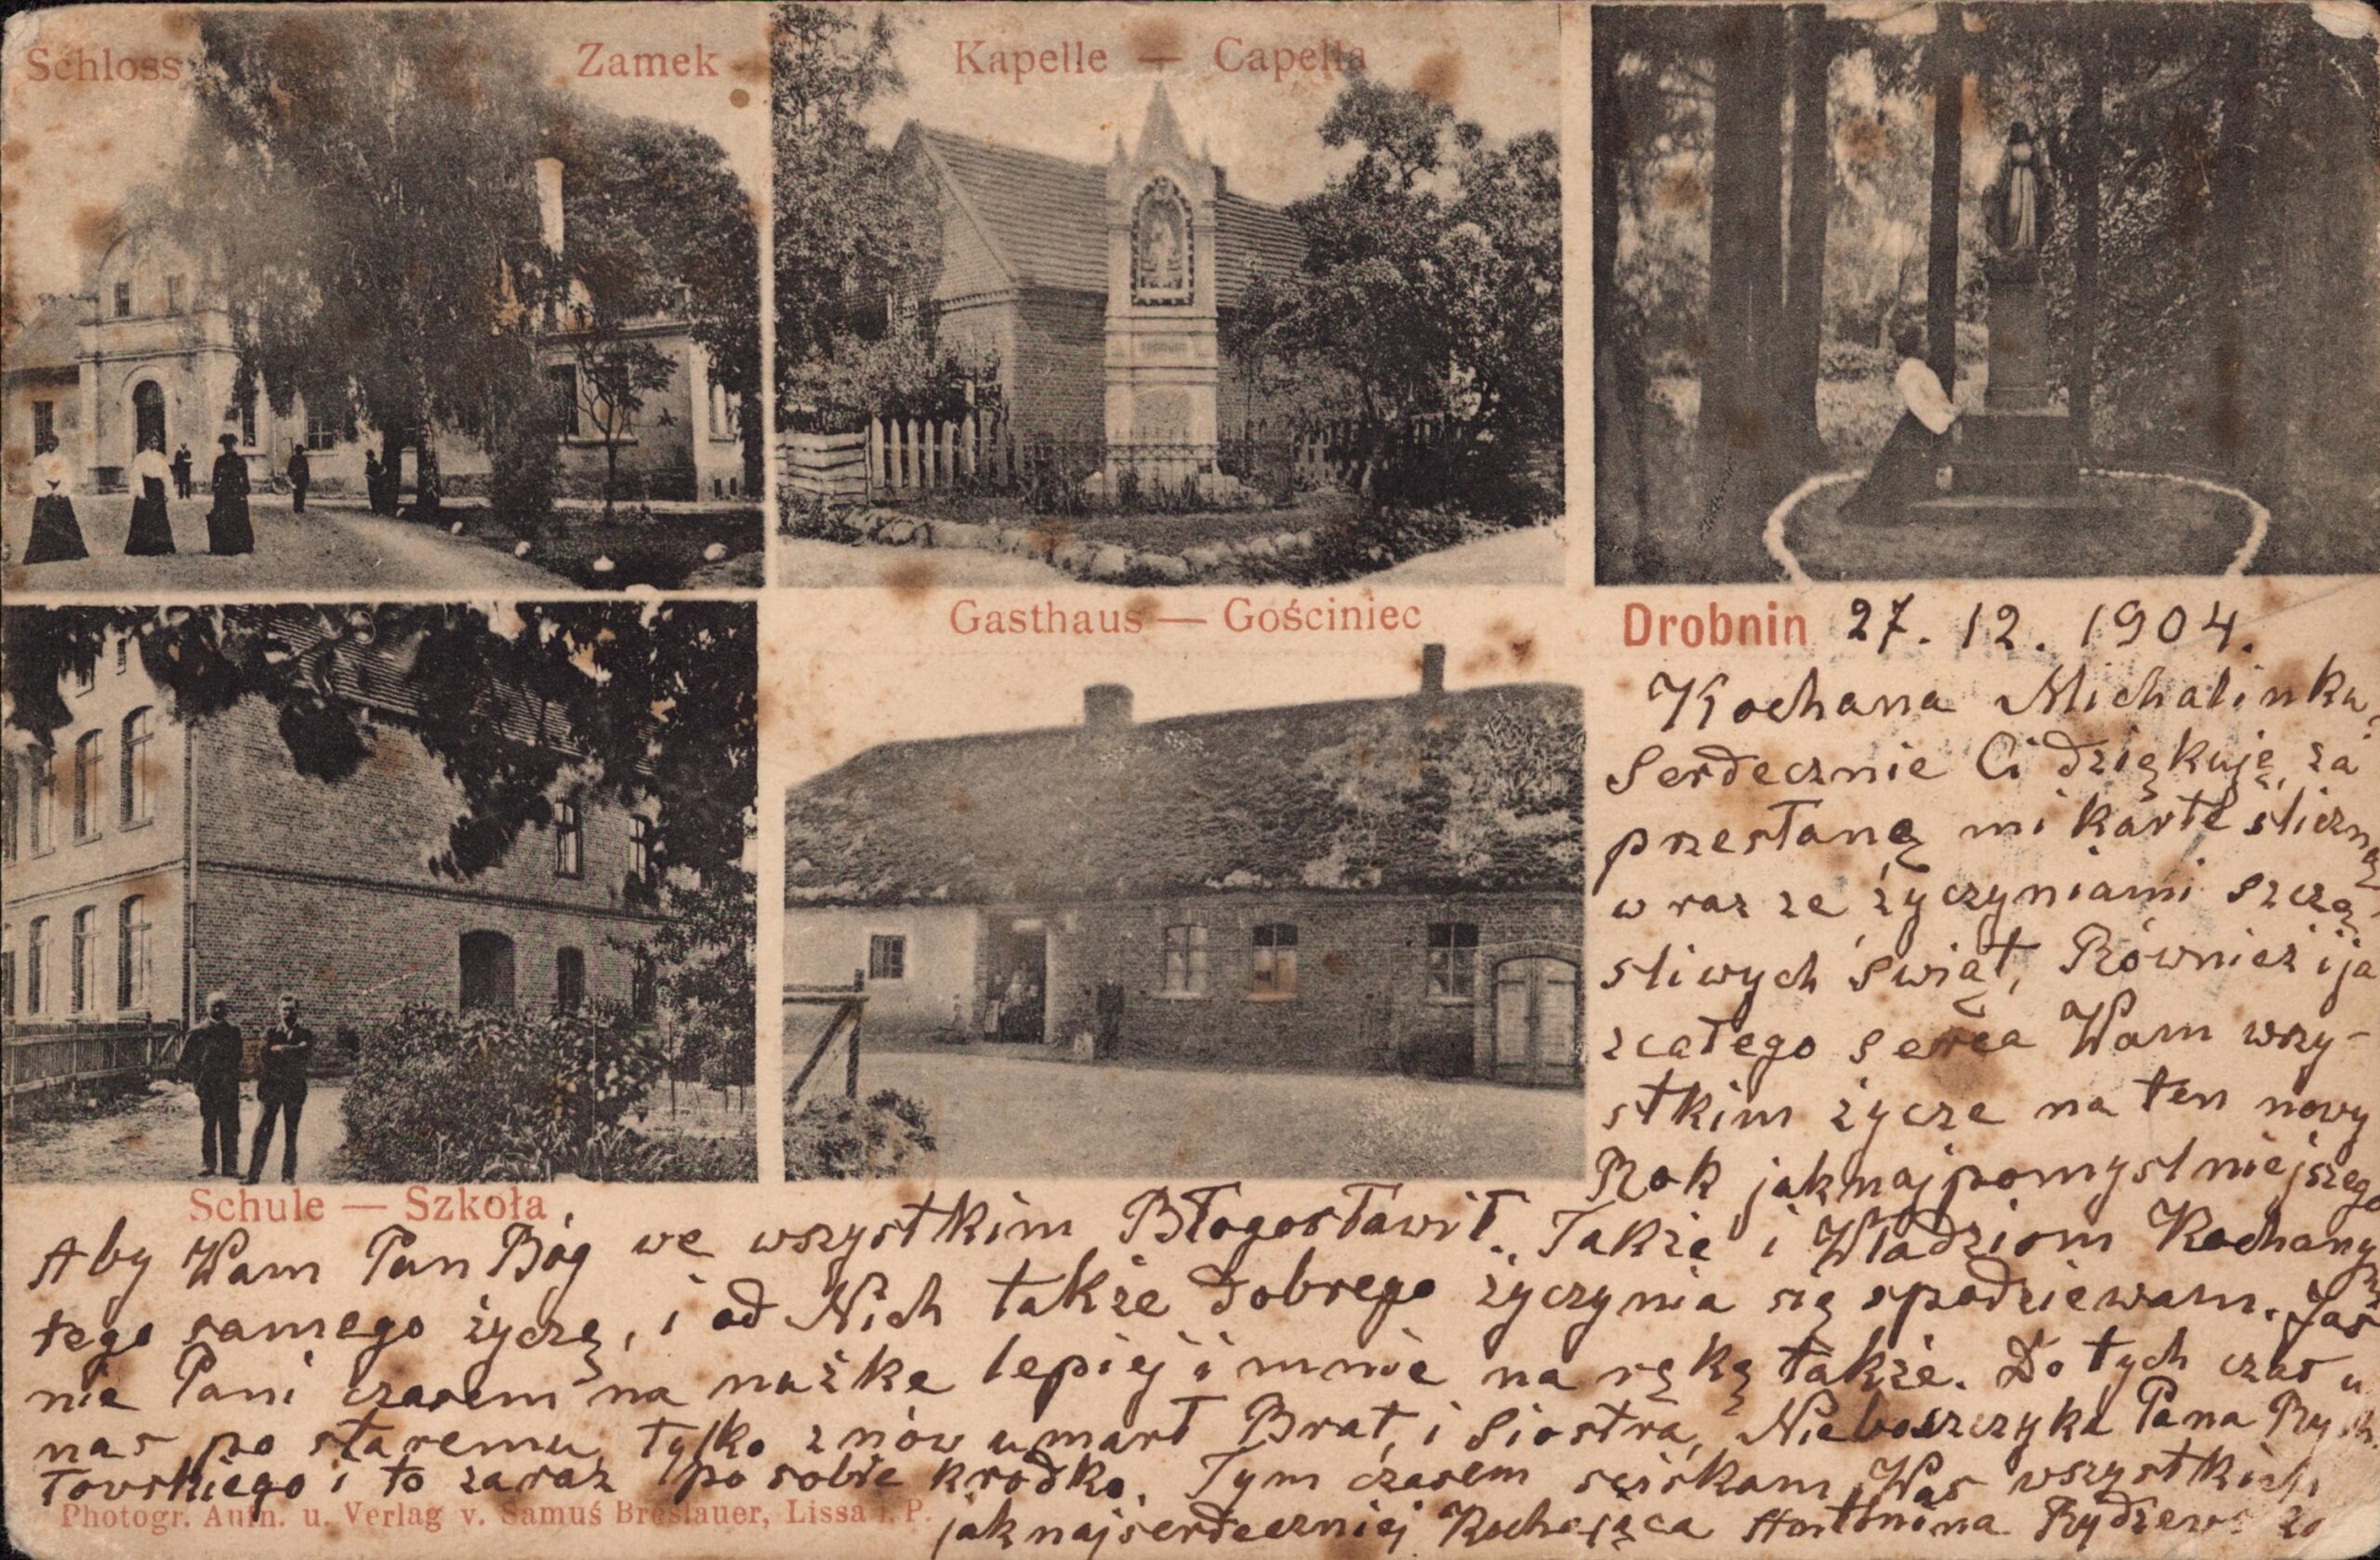 Schloss Zamek
Kapelle — Capella
Gasthaus — Gościniec
Schule — Szkoła
Drobnin 27. 12. 1904.
Kochana Michalinku,
Serdecznie Ci dziękuję, za
przesłaną mi kartę śliczną
wraz ze życzyniami szczę
śliwych Świąt, Również i ja
zcałego serca Wam wszy-
stkim życze na ten nowy
Rok jaknajpomyślniejszego
Aby Wam Pan Bóg we wszystkim Błogosławił. Także i Władziom Kochany
tego samego życzę, i od Nich także dobrego życzynia się spodziewam. Jaś
nie Pani czasem na nużke lepiej i mnie na rękę także. Do tych czas u
nas po staremu, tylko znów umarł Brat, i Siostra, Nieboszczyka Pana
i to zaraz po sobie krodko. Tym czasem sciskam Was wszystkich
jaknajserdeczniej Kochająca Antonina
Photogr. Aufn. u. Verlag v. Samuś Breslauer, Lissa i. P.